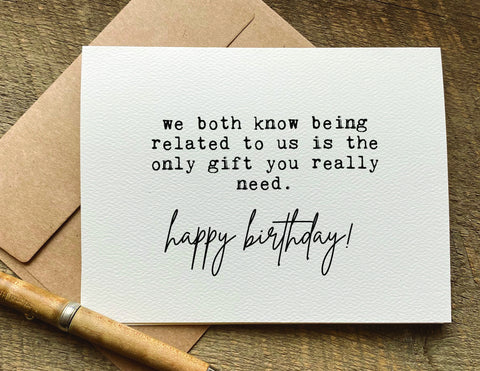 we both know being
related to us is the
only gift you really
need.
happy birthday!